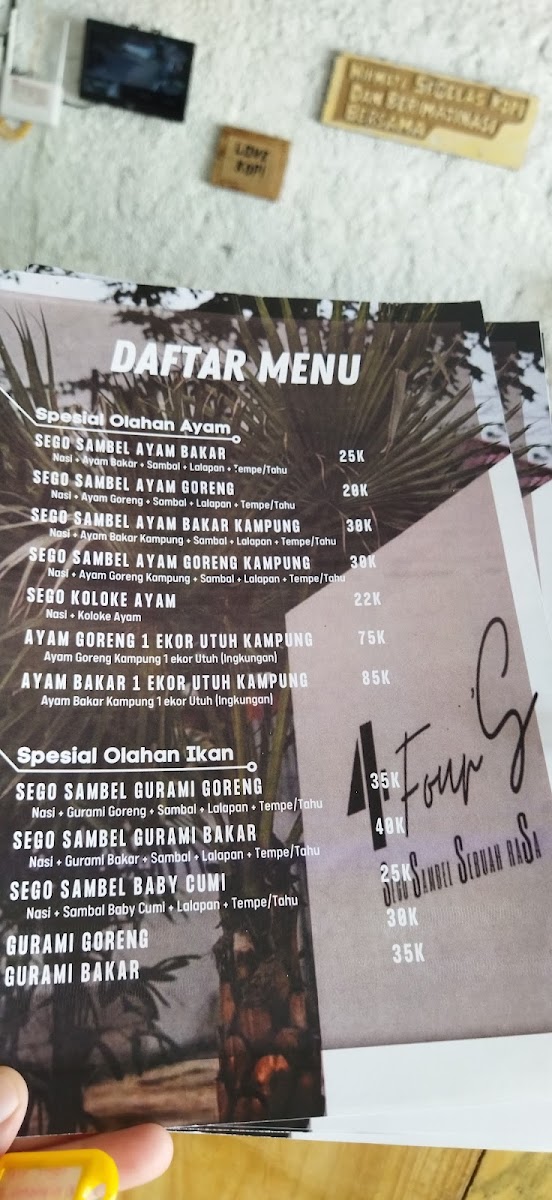 NIKMATI SEGELAS KOPI
DAN BERIMAJINASI
BERSAMA
LOVE
KOPI
DAFTAR MENU
Spesial Olahan Ayam
SEGO SAMBEL AYAM BAKAR 25K
Nasi + Ayam Bakar + Sambal + Lalapan + Tempe/Tahu
SEGO SAMBEL AYAM GORENG 20K
Nasi + Ayam Goreng + Sambal + Lalapan + Tempe/Tahu
SEGO SAMBEL AYAM BAKAR KAMPUNG 30K
Nasi + Ayam Bakar Kampung + Sambal + Lalapan + Tempe/Tahu
SEGO SAMBEL AYAM GORENG KAMPUNG 30K
Nasi + Ayam Goreng Kampung + Sambal + Lalapan + Tempe/Tahu
SEGO KOLOKE AYAM 22K
Nasi + Koloke Ayam
AYAM GORENG 1 EKOR UTUH KAMPUNG 75K
Ayam Goreng Kampung 1 ekor Utuh (Ingkungan)
AYAM BAKAR 1 EKOR UTUH KAMPUNG 85K
Ayam Bakar Kampung 1 ekor Utuh (Ingkungan)
Spesial Olahan Ikan
SEGO SAMBEL GURAMI GORENG 35K
Nasi + Gurami Goreng + Sambal + Lalapan + Tempe/Tahu
SEGO SAMBEL GURAMI BAKAR 40K
Nasi + Gurami Bakar + Sambal + Lalapan + Tempe/Tahu
SEGO SAMBEL BABY CUMI 25K
Nasi + Sambal Baby Cumi + Lalapan + Tempe/Tahu
GURAMI GORENG 30K
GURAMI BAKAR 35K
4 Four'S
SEGO SAMBEL SEBUAH RASA